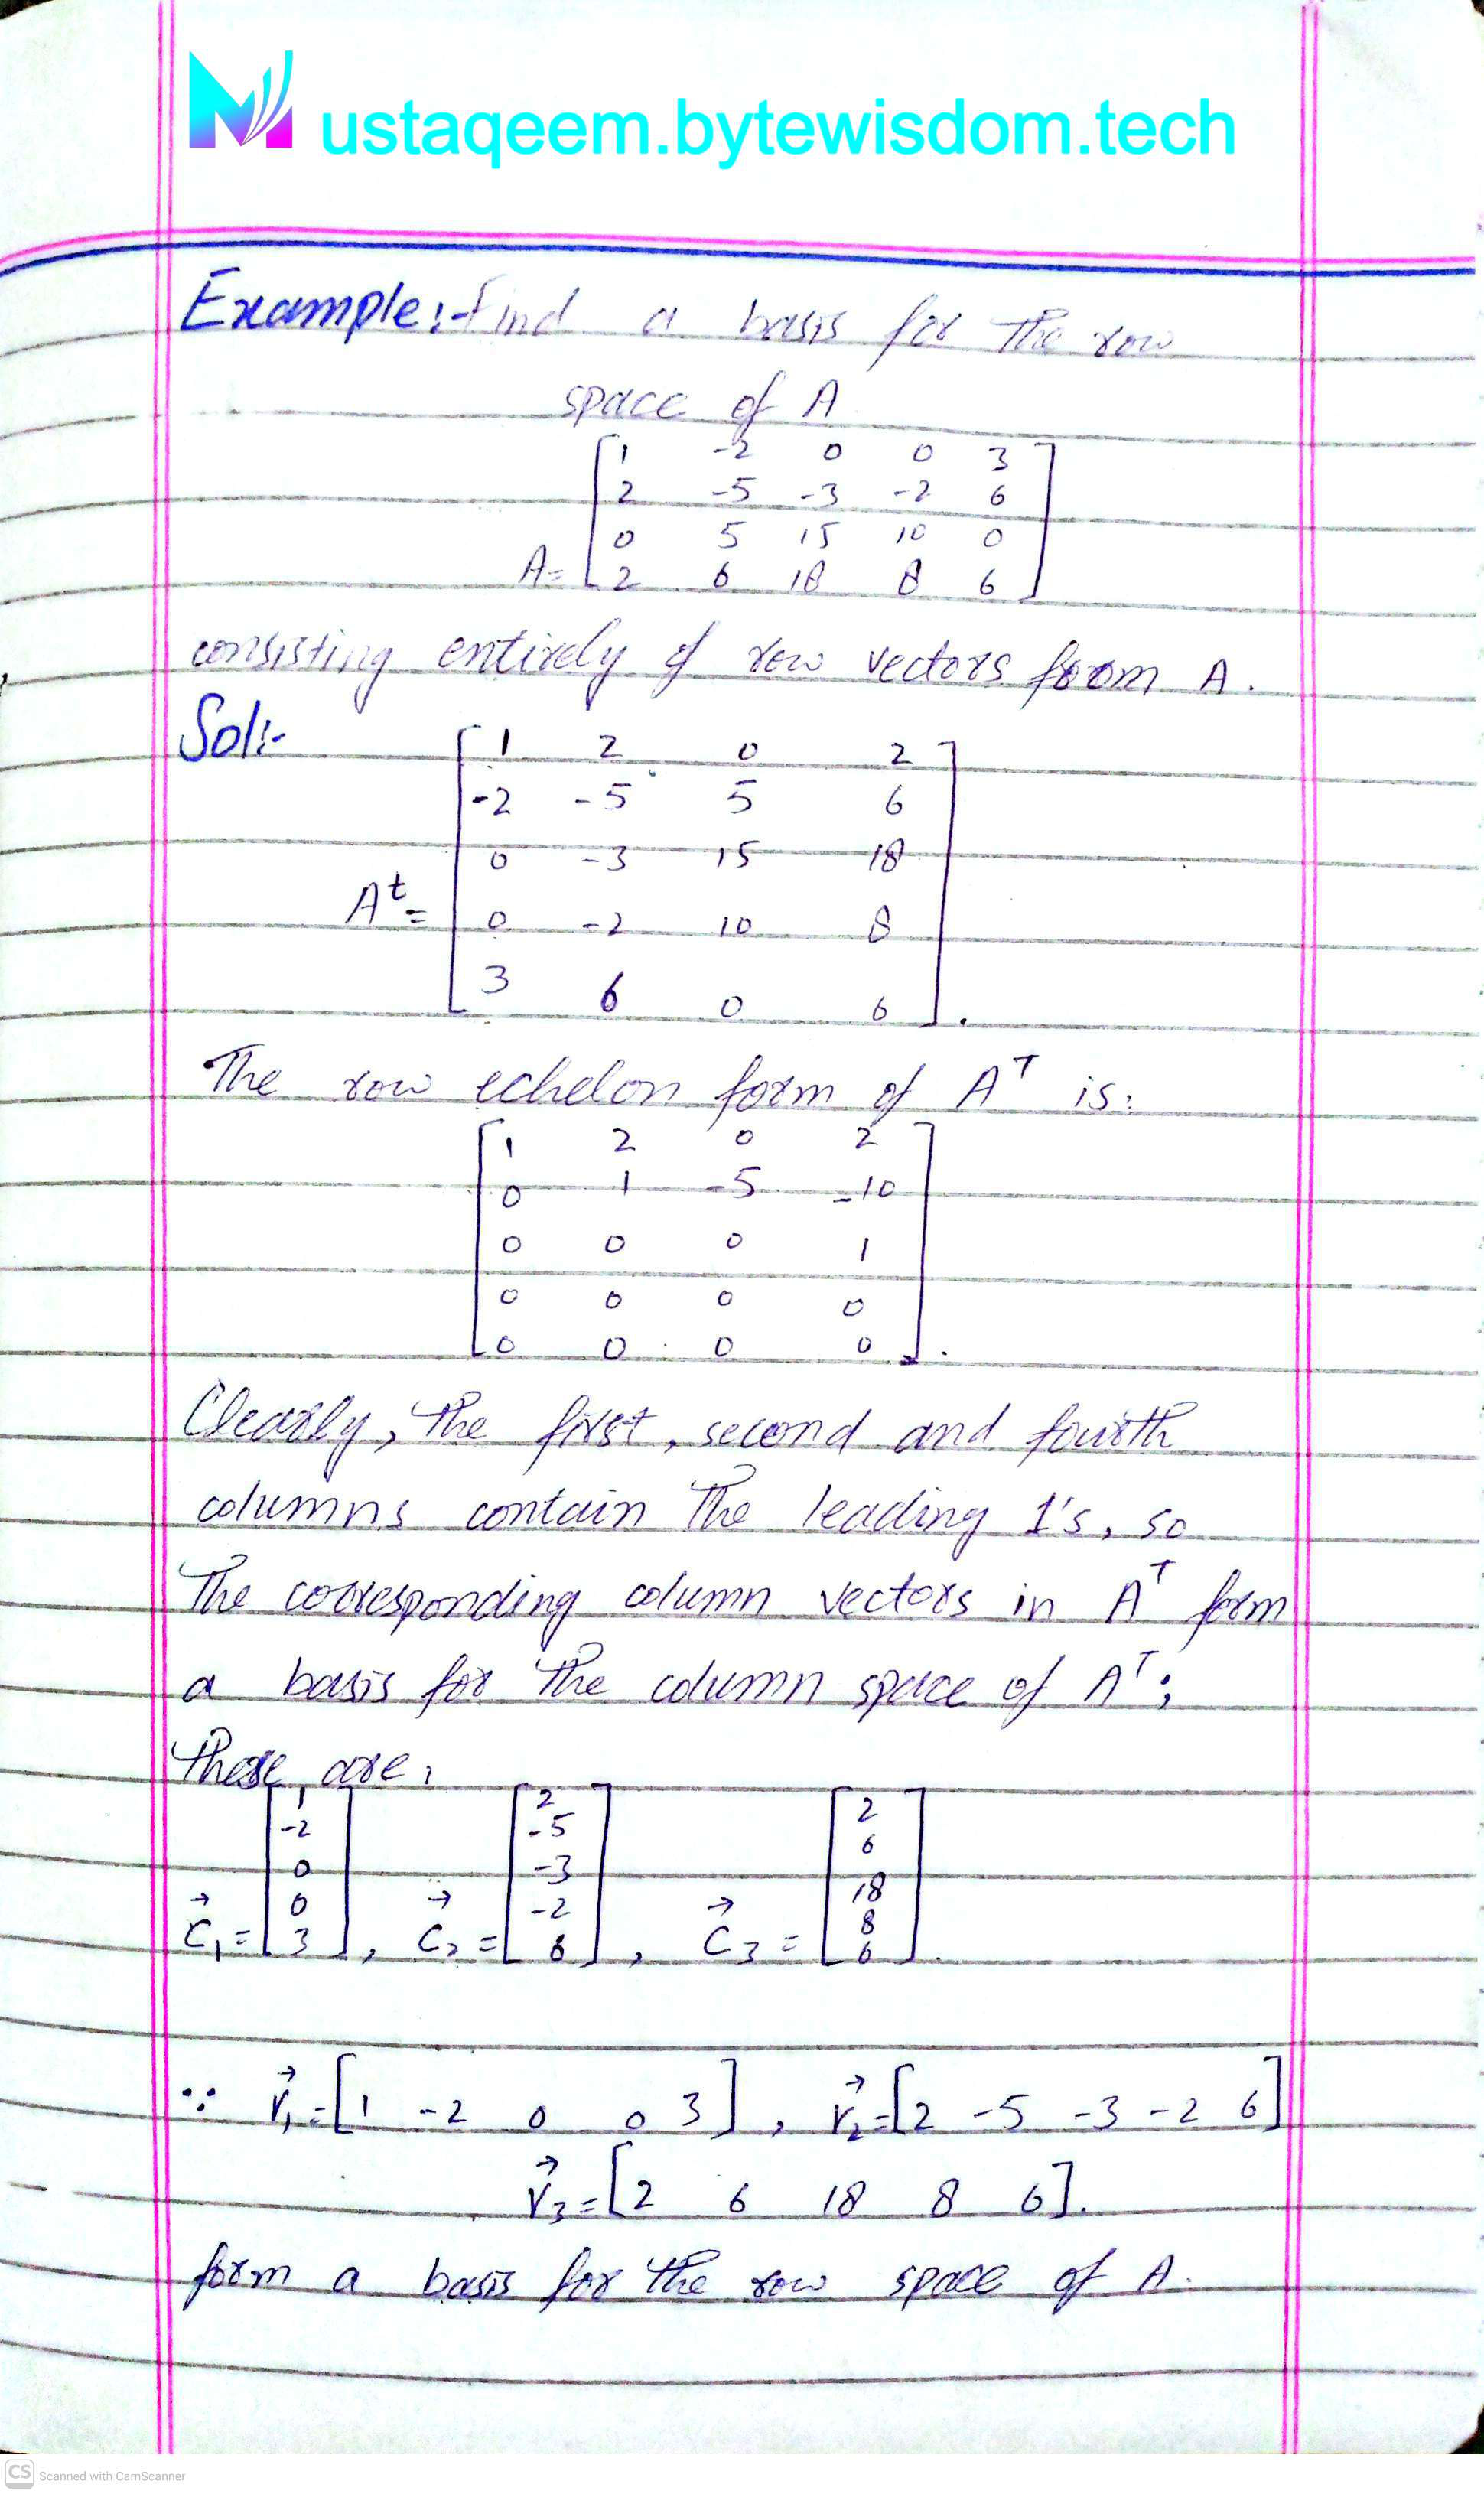 Mustaqeem.bytewisdom.tech
Example:- Find a basis for the row
space of A
A= [1 -2 0 0 3
2 -5 -3 -2 6
0 5 15 10 0
2 6 18 8 6]
consisting entirely of row vectors from A.
Sol:-
Aᵗ= [1 2 0 2
-2 -5 5 6
0 -3 15 18
0 -2 10 8
3 6 0 6].
The row echelon form of Aᵀ is:
[1 2 0 2
0 1 -5 -10
0 0 0 1
0 0 0 0
0 0 0 0].
Clearly, the first, second and fourth
columns contain the leading 1's, so
the corresponding column vectors in Aᵀ form
a basis for the column space of Aᵀ;
these are,
c⃗₁ = [1 -2 0 0 3], c⃗₂ = [2 -5 -3 -2 6], c⃗₃ = [2 6 18 8 6].
∵ r⃗₁ = [1 -2 0 0 3], r⃗₂ = [2 -5 -3 -2 6]
r⃗₃ = [2 6 18 8 6].
form a basis for the row space of A.
CS Scanned with CamScanner